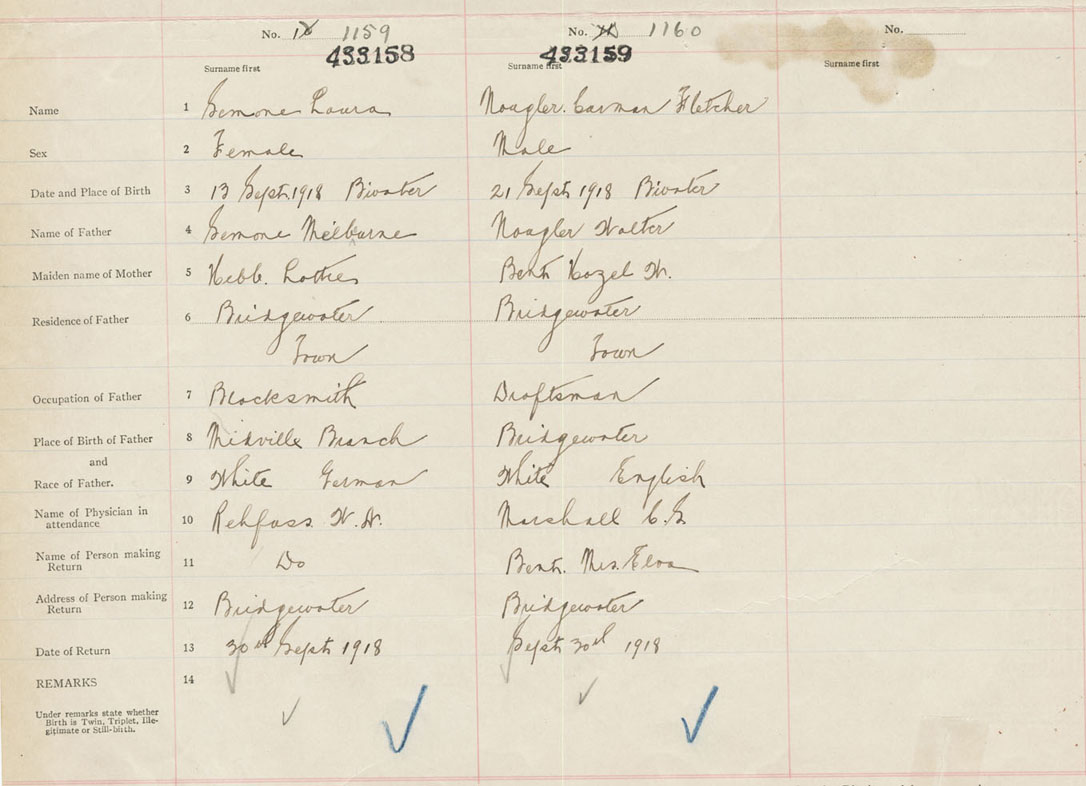 No. 1159 No. 1160 No.
433158 433159
Surname first Surname first Surname first
Name 1 Simone Laura Naugler. Carman Fletcher
Sex 2 Female Male
Date and Place of Birth 3 13 Sept. 1918 Biwater 21 Sept. 1918 Biwater
Name of Father 4 Simone Melburne Naugler Walter
Maiden name of Mother 5 Hebb. Lottie Bent Hazel W.
Residence of Father 6 Bridgewater Bridgewater
Town Town
Occupation of Father 7 Blacksmith Draftsman
Place of Birth of Father 8 Midville Branch Bridgewater
and
Race of Father. 9 White German White English
Name of Physician in
attendance 10 Rehfuss. W. N. Marshall C. G.
Name of Person making
Return 11 Do Bent. Mrs.
Address of Person making
Return 12 Bridgewater Bridgewater
Date of Return 13 30th Sept 1918 Sept 30th 1918
REMARKS 14
Under remarks state whether
Birth is Twin, Triplet, Ille-
gitimate or Still-birth.